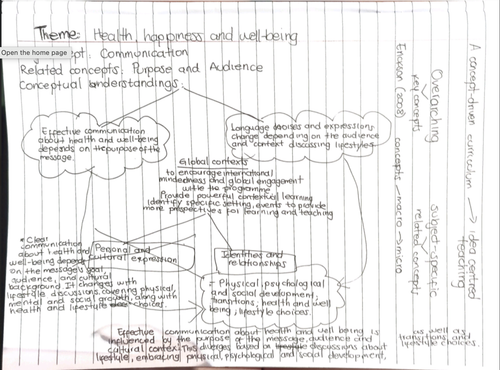 Theme: Health, happiness and well-being
Open the home page
Concept: Communication
Related concepts: Purpose and Audience
Conceptual understandings:
Effective communication
about health and well-being
depends on the purpose of the
message.
Language choices and expressions
change depending on the audience
and context discussing lifestyles.
Global contexts
to encourage international
mindedness and global engagement
within the programme
Provide powerful contextual learning
identify specific setting, events to provide
more perspectives for learning and teaching
Personal and
cultural expression
Identities and
relationships
* Clear
communication
about health and
well-being depends
on the message's goal,
audience, and cultural
background. It changes with
lifestyle discussions, covering physical,
mental and social growth, along with
health and lifestyle choices.
- Physical, psychological
and social development,
transitions, health and well
being, lifestyle choices.
Effective communication about health and well being is
influenced by the purpose of the message, audience and
cultural context. This diverges based on lifestyle discussions about
lifestyle, embracing physical, psychological and social development,
as well as
transitions, and
lifestyle choices.
A concept-driven curriculum → idea centred
teaching
Overarching
key concepts
subject-specific
related concepts
Erickson (2008) concepts - macro → micro